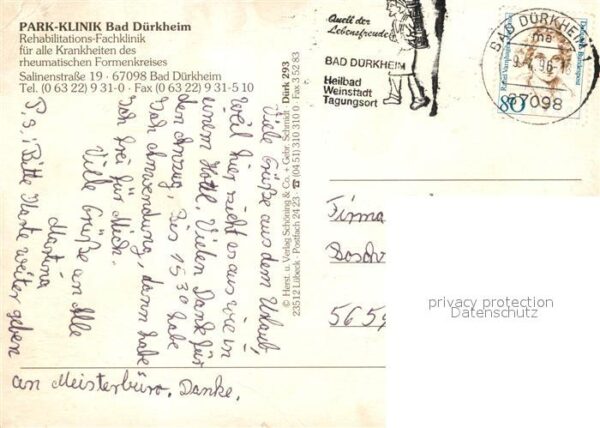 PARK-KLINIK Bad Dürkheim
Rehabilitations-Fachklinik
für alle Krankheiten des
rheumatischen Formenkreises
Salinenstraße 19 · 67098 Bad Dürkheim
Tel. (0 63 22) 9 31-0 · Fax (0 63 22) 9 31-5 10
Viele Grüße aus dem Urlaub,
weil hier sieht es aus wie in
einem Hotel. Vielen Dank für
den Anzug, bis 1530 habe
Ich Anwendung, dann habe
Ich frei für Mich.
Viele Grüße an Alle
Martina
P.S.: Bitte Karte weiter geben
an Meisterbüro. Danke.
© Herst. u. Verlag Schöning & Co. + Gebr. Schmidt · Dürk 293
23512 Lübeck · Postfach 24 23 · ☎ (04 51) 310 310 0 · Fax 3 52 83
Quell der
Lebensfreude
BAD DÜRKHEIM
Heilbad
Weinstadt
Tagungsort
BAD DÜRKHEIM 1
ma
67098
Deutsche Bundespost
80
Firma
5659
privacy protection
Datenschutz